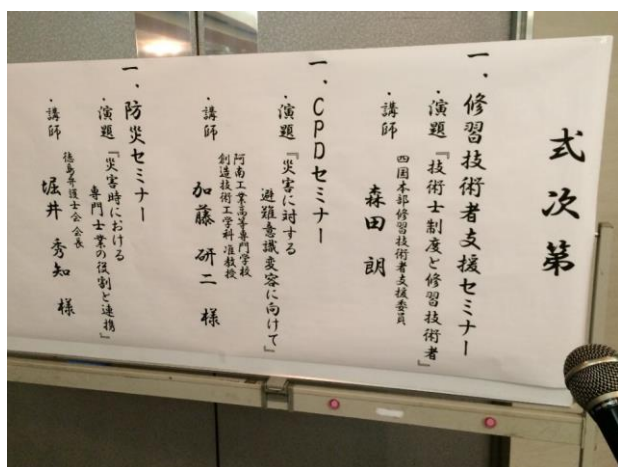 式次第
一、修習技術者支援セミナー
・演題『技術士制度と修習技術者』
・講師
四国本部修習技術者支援委員
森田 朗
一、CPDセミナー
・演題『災害に対する
避難意識変容に向けて』
・講師
阿南工業高等専門学校
創造技術工学科 准教授
加藤 研二 様
一、防災セミナー
・演題『災害時における
専門士業の役割と連携』
・講師
徳島弁護士会 会長
堀井 秀知 様